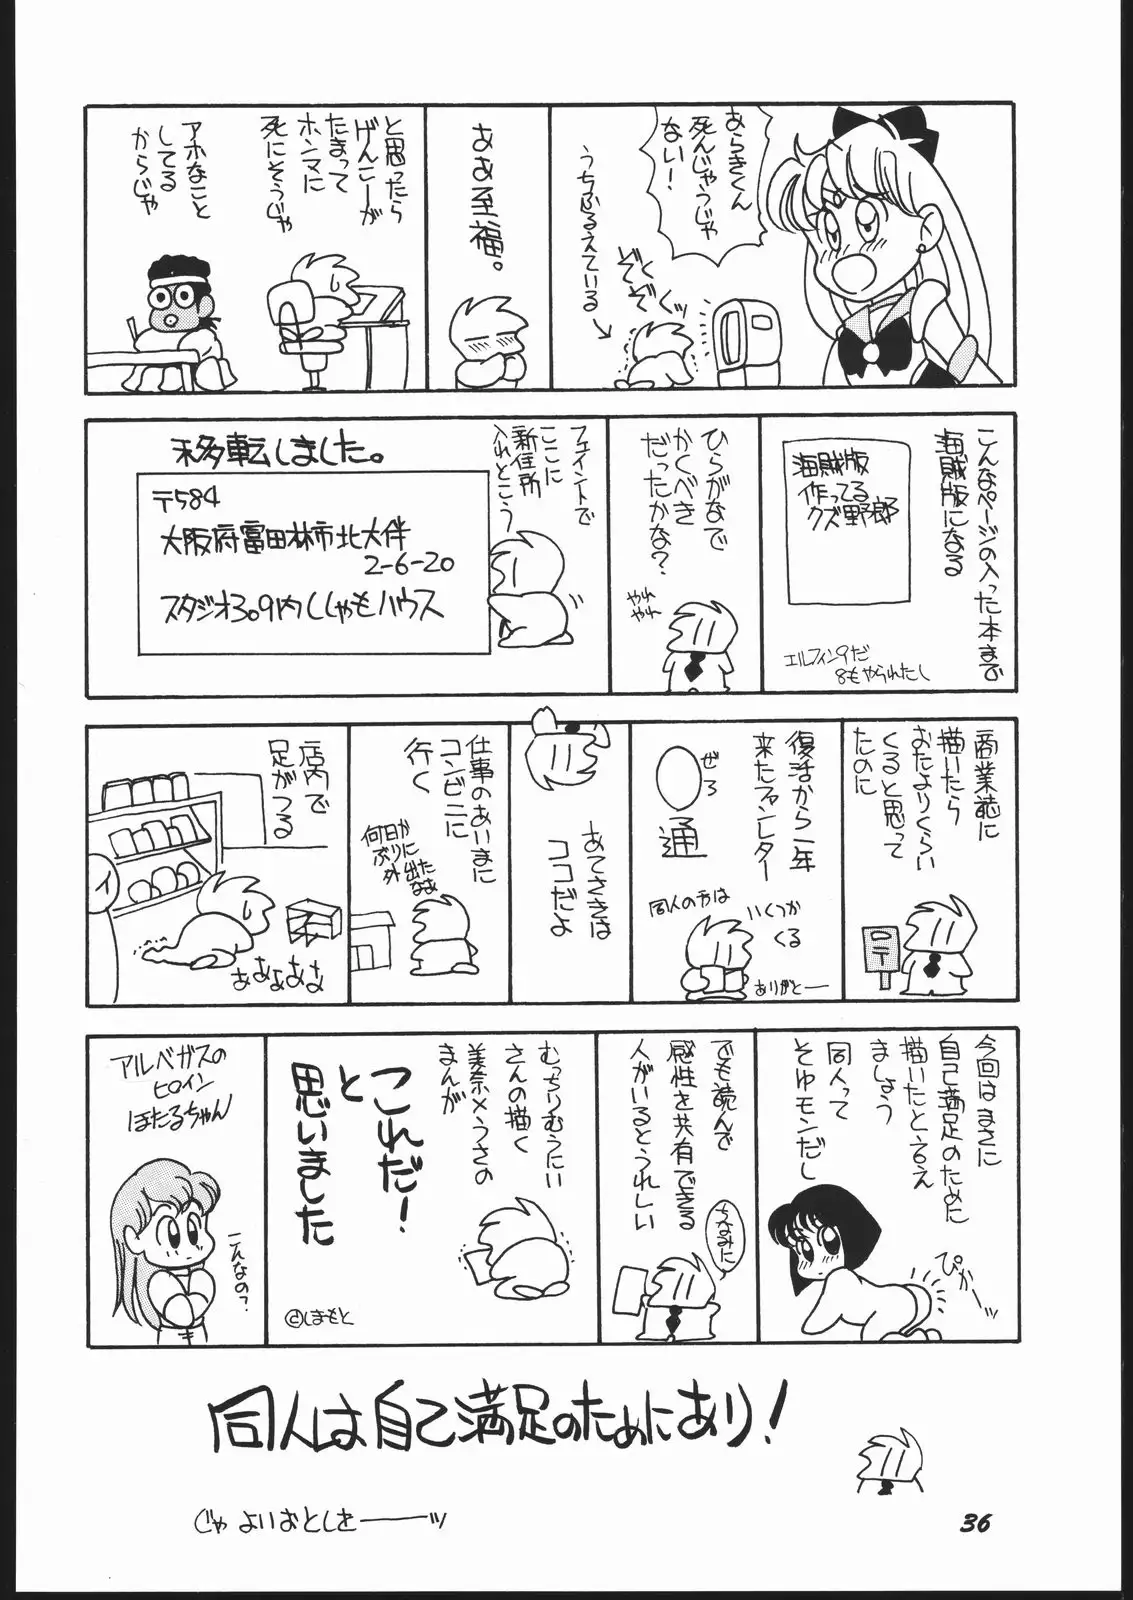 あらきくん
死んじゃうじゃ
ない！
ぞくぞくっ
うちふるえている
ああ至福。
と思ったら
げんこーが
たまって
ホンマに
死にそうじゃ
アホなこと
してる
からじゃ
こんなページの入った本まで
海賊版になる
海賊版
作ってる
クズ野郎
エルフィン9だ
8もやられたし
ひらがなで
かくべき
だったかな？
やれ
やれ
フェイントで
ここに
新住所
入れとこう
移転しました。
〒584
大阪府富田林市北大伴
2-6-20
スタジオ3。9内ししゃもハウス
商業誌に
描いたら
おたよりくらい
くると思って
たのに
〒
復活から一年
来たファンレター
ぜろ
通
同人の方は
いくつか
くる
ありがとー
あてさきは
ココだよ
仕事のあいまに
コンビニに
行く
何日か
ぶりに
外出た
なぁ
店内で
足がつる
イ
ああああぁ
今回はまさに
自己満足のために
描いたとゆえ
ましょう
同人って
そゆモンだし
ぴかーッ
でも読んで
感性を共有できる
人がいるとうれしい
ちなみに
むっちりむうにい
さんの描く
美奈×うさの
まんが
これだ！
と
思いました
©しまもと
アルベガスの
ヒロイン
ほたるちゃん
こんなの？
同人は自己満足のためにあり！
じゃ よいおとしをーーッ
36